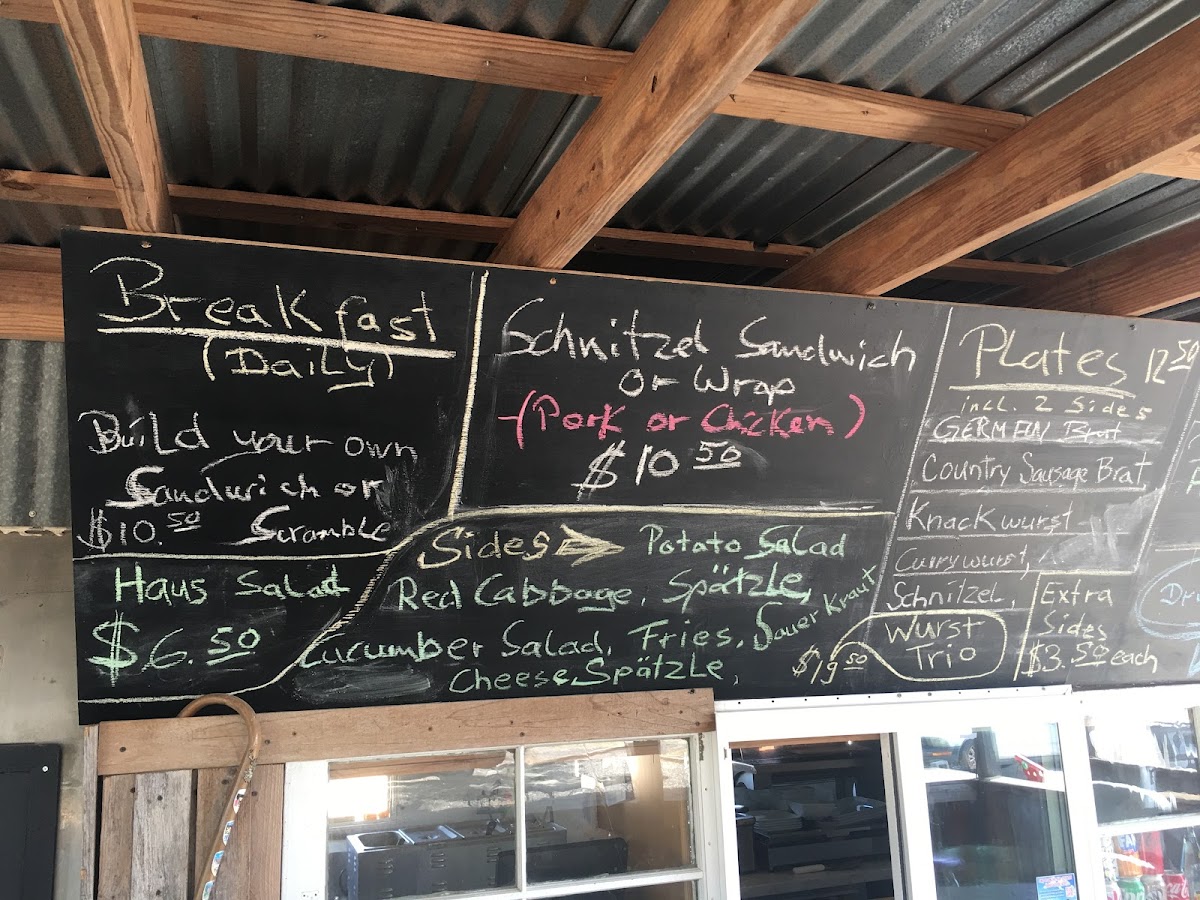 Breakfast
(Daily)
Build your own
Sandwich or
$10.50 Scramble
Haus Salad
$6.50
Schnitzel Sandwich
or Wrap
(Pork or Chicken)
$10 50
Sides Potato Salad
Red Cabbage, Spätzle,
Cucumber Salad, Fries, Sauer Kraut
Cheese Spätzle,
Plates 12 50
incl. 2 Sides
GERMAN Brat
Country Sausage Brat
Knackwurst
Currywurst,
Schnitzel,
Wurst
Trio
$19 50
Extra
Sides
$3.50 each